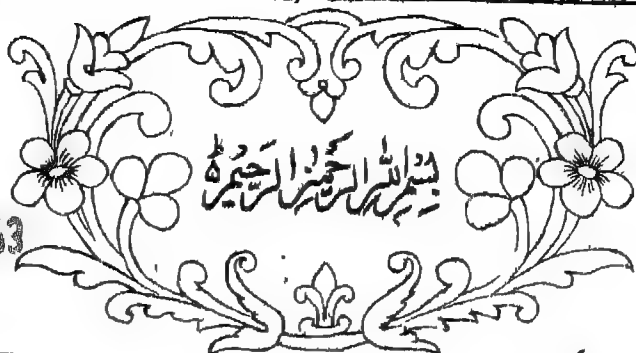 بِسْمِ اللهِ الرَّحْمٰنِ الرَّحِيْمِ ۵
63